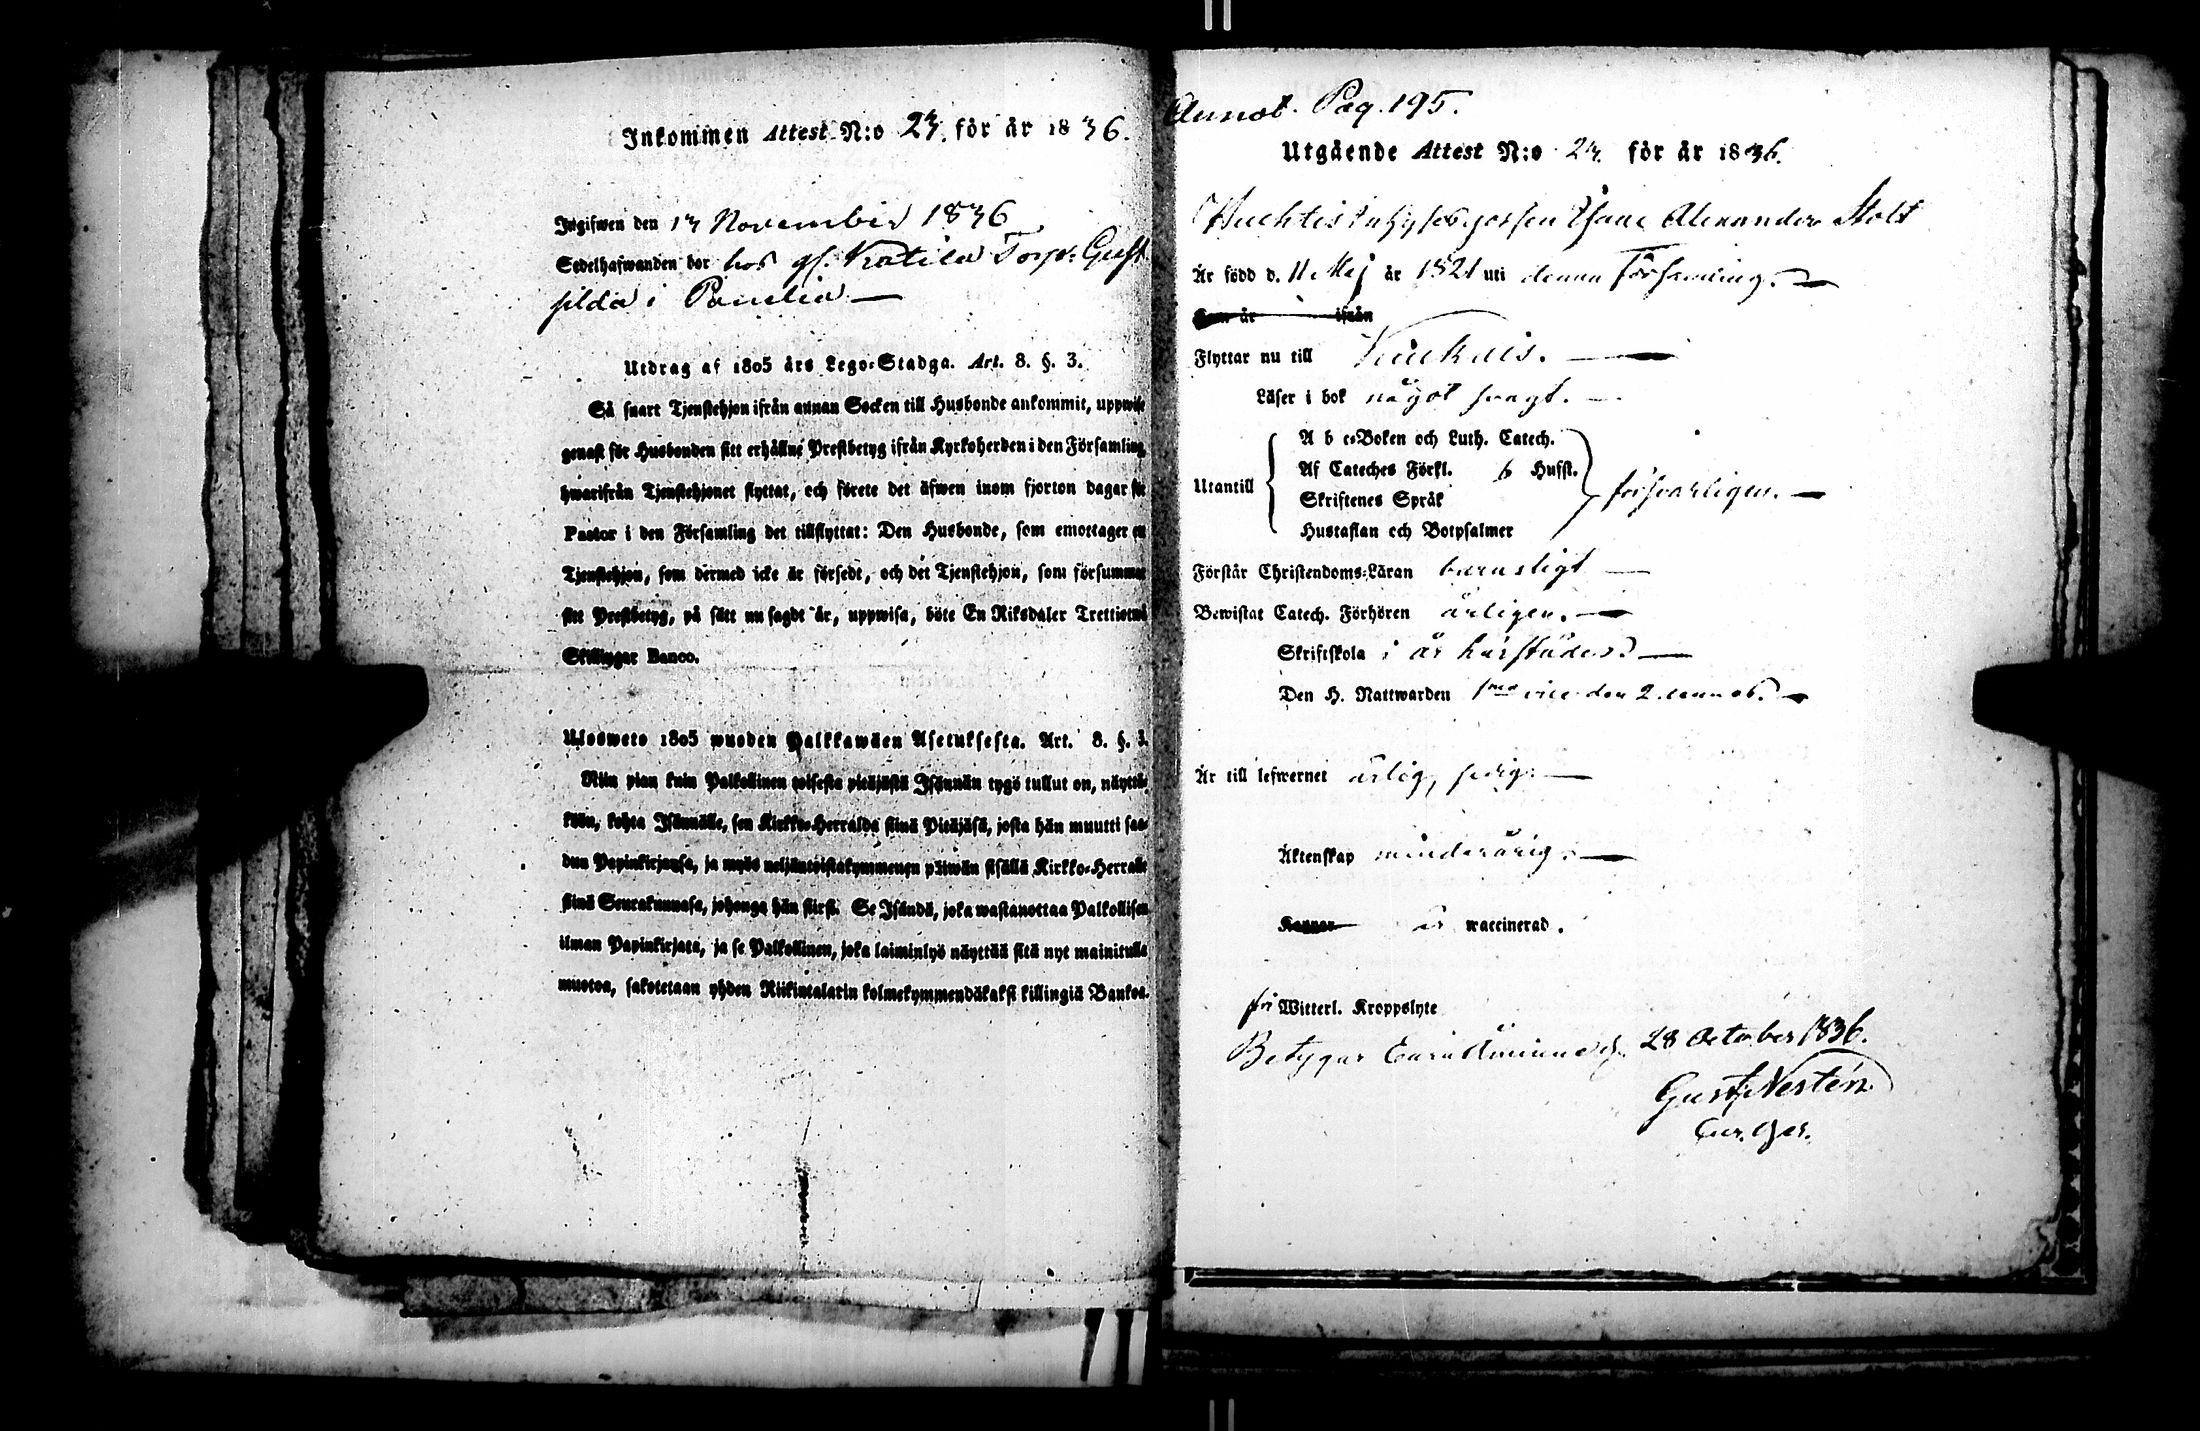 Inkommen Attest N:o 23. för år 1836.
Ingifwen den 13 November 1836
Sedelhafwanden bor hos gf. Katila Torp. Gust
i Panelia
Utdrag af 1805 års Lego-Stadga. Art. 8. §. 3.
Så snart Tjenstehjon ifrån annan Socken till Husbonde ankommit, uppwise
genast för Husbonden sitt erhållne Prestbetyg ifrån Kyrkoherden i den Församling
hwarifrån Tjenstehjonet flyttat, och förete det äfwen inom fjorton dagar för
Pastor i den Församling det tillflyttat: Den Husbonde, som emottager en
Tjenstehjon, som dermed icke är försedt, och det Tjenstehjon, som försummar
sitt Prestbetyg, på sätt nu sagdt är, uppwisa, böte En Riksdaler Trettiotwå
Skillingar Banco.
Ulosweto 1805 wuoden Palkkawäen Asetuksesta. Art. 8. §. 3.
Niin pian kuin Palkollinen toisesta pitäjästä Isännän tygö tullut on, näyttä-
köön, kohta Isännälle, sen Kirkko-Herralda siinä Pitäjäsä, josta hän muutti saa-
dun Papinkirjansa, ja myös neljäntoistakymmenen päiwän sisällä Kirkko-Herralle
siinä Seurakunnasa, johonga hän siirsi. Se Isändä, joka wastanottaa Palkollisen
ilman Papinkirjata, ja se Palkollinen, joka laiminlyö näyttää sitä nyt mainitulla
muotoa, sakotetaan yhden Riikintalarin kolmekymmendäkaksi killingiä Bankoa.
Annot. Pag. 195.
Utgående Attest N:o 23. för år 1836.
Alexander Stolt
Är född d. 11 Maj år 1821 uti denna Församling.
Kom år ifrån
Flyttar nu till Kiukais.
Läser i bok något svagt.
Utantill
A b c-Boken och Luth. Catech.
Af Cateches Förkl. Hufst.
Skriftenes Språk
Hustaflan och Botpsalmer
försvarligen.
Förstår Christendoms-Läran barnsligt
Bewistat Catech. Förhören årligen.
Skriftskola i år härstädes
Den H. Nattwarden 1ma vice den
Är till lefwernet ärlig, sedig.
Äktenskap minderårig.
Koppor är waccinerad.
fri Witterl. Kroppslyte
Betygar Euraåminne d. 28 October 1836.
Gust. Nestén